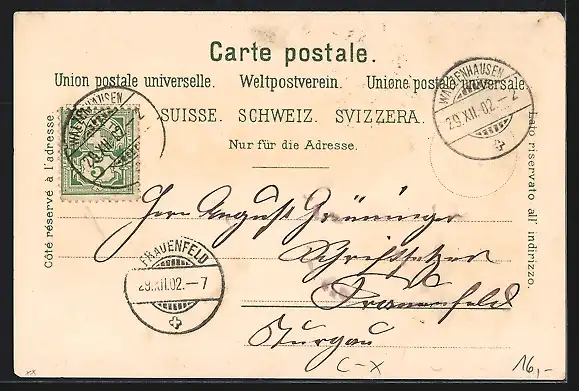 Carte postale.
Union postale universelle. Weltpostverein. Unione postale universale.
SUISSE. SCHWEIZ. SVIZZERA.
Nur für die Adresse.
Côté réservé à l'adresse.
lato riservato all' indirizzo.
29.XII.02.–2
5
29.XII.02.–2
Herrn August Grüninger
Schriftsetzer
Frauenfeld
Thurgau
FRAUENFELD
29.XII.02.–7
C-X
16,-
xx